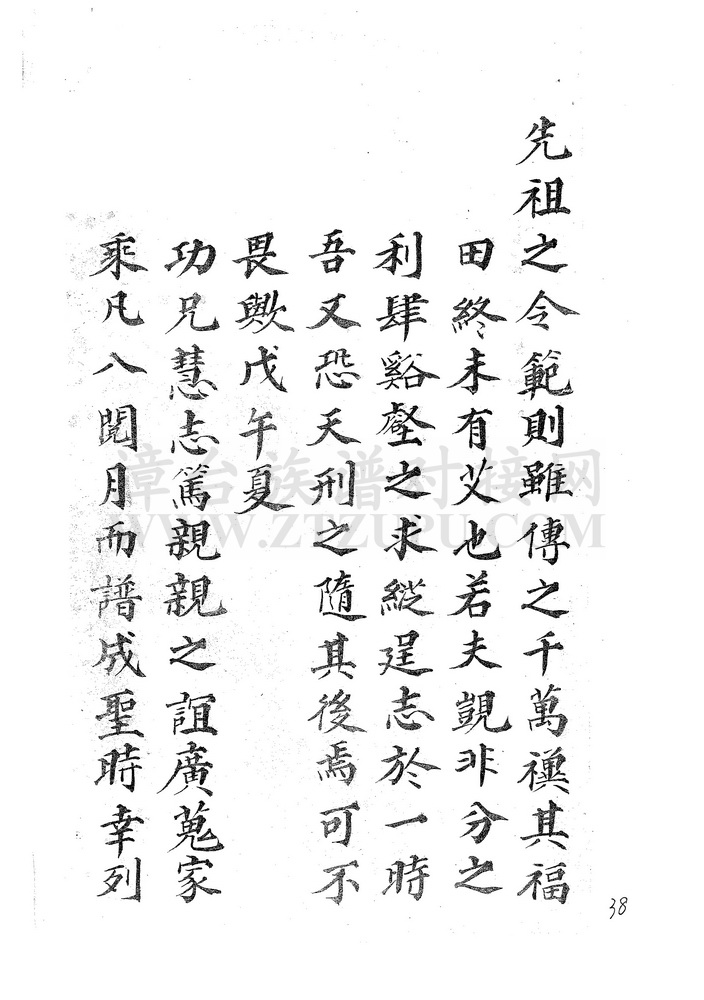 先祖之令範則雖傳之千萬禩其福
田終未有艾也若夫覬非分之
利肆谿壑之求縱逞志於一時
吾又恐天刑之隨其後焉可不
畏歟戊午夏
功兄慧志篤親親之誼廣蒐家
乘凡八閱月而譜成聖時幸列
38
漳台族谱对接网
WWW.ZTZUPU.COM